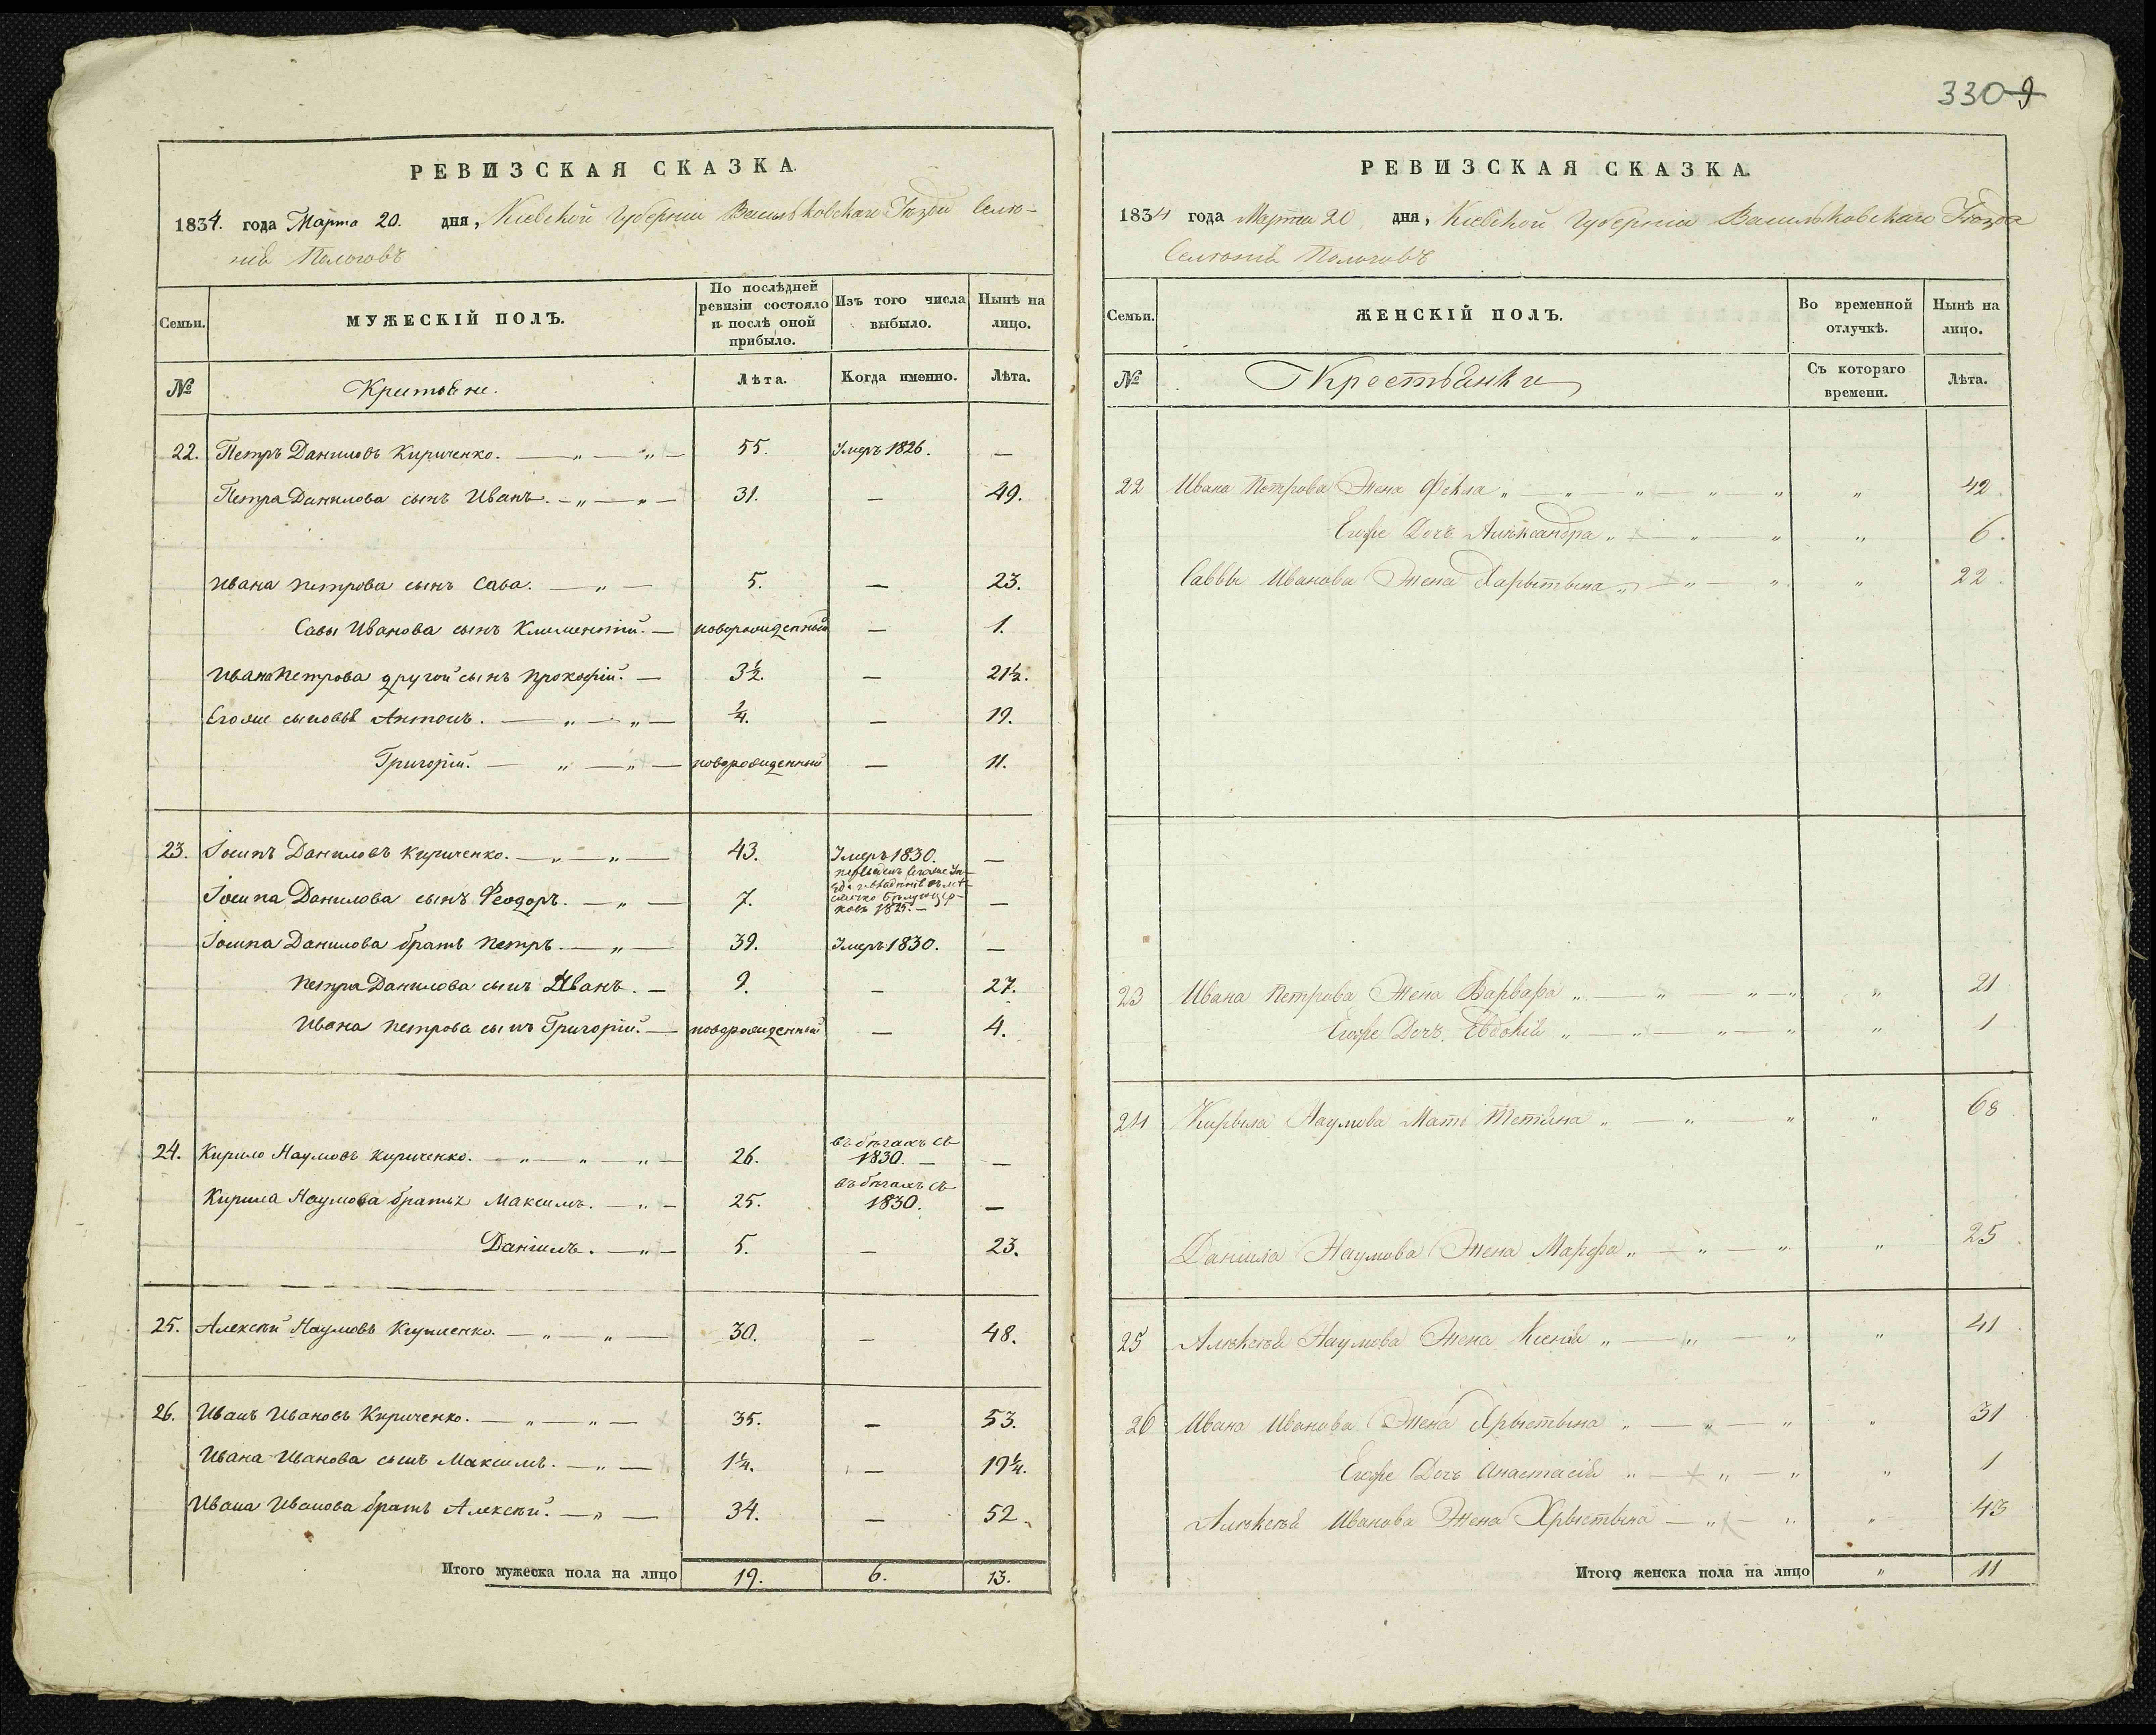 330 9
РЕВИЗСКАЯ СКАЗКА.
1834. года Марта 20. дня, Кіевской Губерніи Васильковскаго Уѣзда Селе-
нія Пологовъ
Семьи.
МУЖЕСКІЙ ПОЛЪ.
По послѣдней ревизіи состояло и послѣ оной прибыло.
Изъ того числа выбыло.
Нынѣ на лицо.
№
Крестьяне.
Лѣта.
Когда именно.
Лѣта.
22. Петръ Даниловъ Кириченко. — „ — „ — 55. Умеръ 1826. —
Петра Данилова сынъ Иванъ. — „ — „ — 31. — 49.
Ивана Петрова сынъ Сава. — „ — 5. — 23.
Савы Иванова сынъ Климентій. — новорожденный — 1.
Ивана Петрова другой сынъ Прокофій. — 3½. — 21½.
Егоже сыновья Антонъ. — „ — „ — ¼. — 19.
Григорій. — „ — „ — новорожденный — 11.
23. Іосипъ Даниловъ Кириченко. — „ — „ — 43. Умеръ 1830. —
Іосипа Данилова сынъ Феодоръ. — „ — 7. 1825. — —
Іосипа Данилова братъ Петръ. — „ — 39. Умеръ 1830. —
Петра Данилова сынъ Иванъ. — 9. — 27.
Ивана Петрова сынъ Григорій. — новорожденный — 4.
24. Кирило Наумовъ Кириченко. — „ — „ — „ — 26. въ бѣгахъ съ 1830. — —
Кирила Наумова братья Максимъ. — „ — 25. въ бѣгахъ съ 1830. —
Даніилъ. — „ — 5. — 23.
25. Алексѣй Наумовъ Кириченко. — „ — „ — 30. — 48.
26. Иванъ Ивановъ Кириченко. — „ — „ — 35. — 53.
Ивана Иванова сынъ Максимъ. — „ — 1¼. — 19¼.
Ивана Иванова братъ Алексѣй. — „ — 34. — 52.
Итого мужеска пола на лицо 19. 6. 13.
РЕВИЗСКАЯ СКАЗКА.
1834 года Марта 20 дня, Кіевской Губерніи Васильковскаго Уѣзда
Селенія Пологовъ
Семьи.
ЖЕНСКІЙ ПОЛЪ.
Во временной отлучкѣ.
Нынѣ на лицо.
№
Крестьянки
Съ котораго времени.
Лѣта.
22 Ивана Петрова Жена Фекла „ — „ — „ — „ „ „ 42.
Егоже Дочь Александра „ — „ — „ „ 6.
Саввы Иванова Жена Харытына „ — „ — „ „ 22.
23 Ивана Петрова Жена Варвара „ — „ — „ — „ „ 21
Егоже Дочь Евдокія „ — „ — „ — „ „ 1
24 Кирыла Наумова Мать Тетіяна „ — „ — „ „ 68
Даніила Наумова Жена Марфа „ — „ — „ „ 25.
25 Алексѣя Наумова Жена Ксенія „ — „ — „ „ 41
26 Ивана Иванова Жена Хрыстына „ — „ — „ „ 31
Егоже Дочь Анастасія „ — „ — „ „ 1
Алексѣя Иванова Жена Хрыстына — „ — „ „ 43
Итого женска пола на лицо „ 11